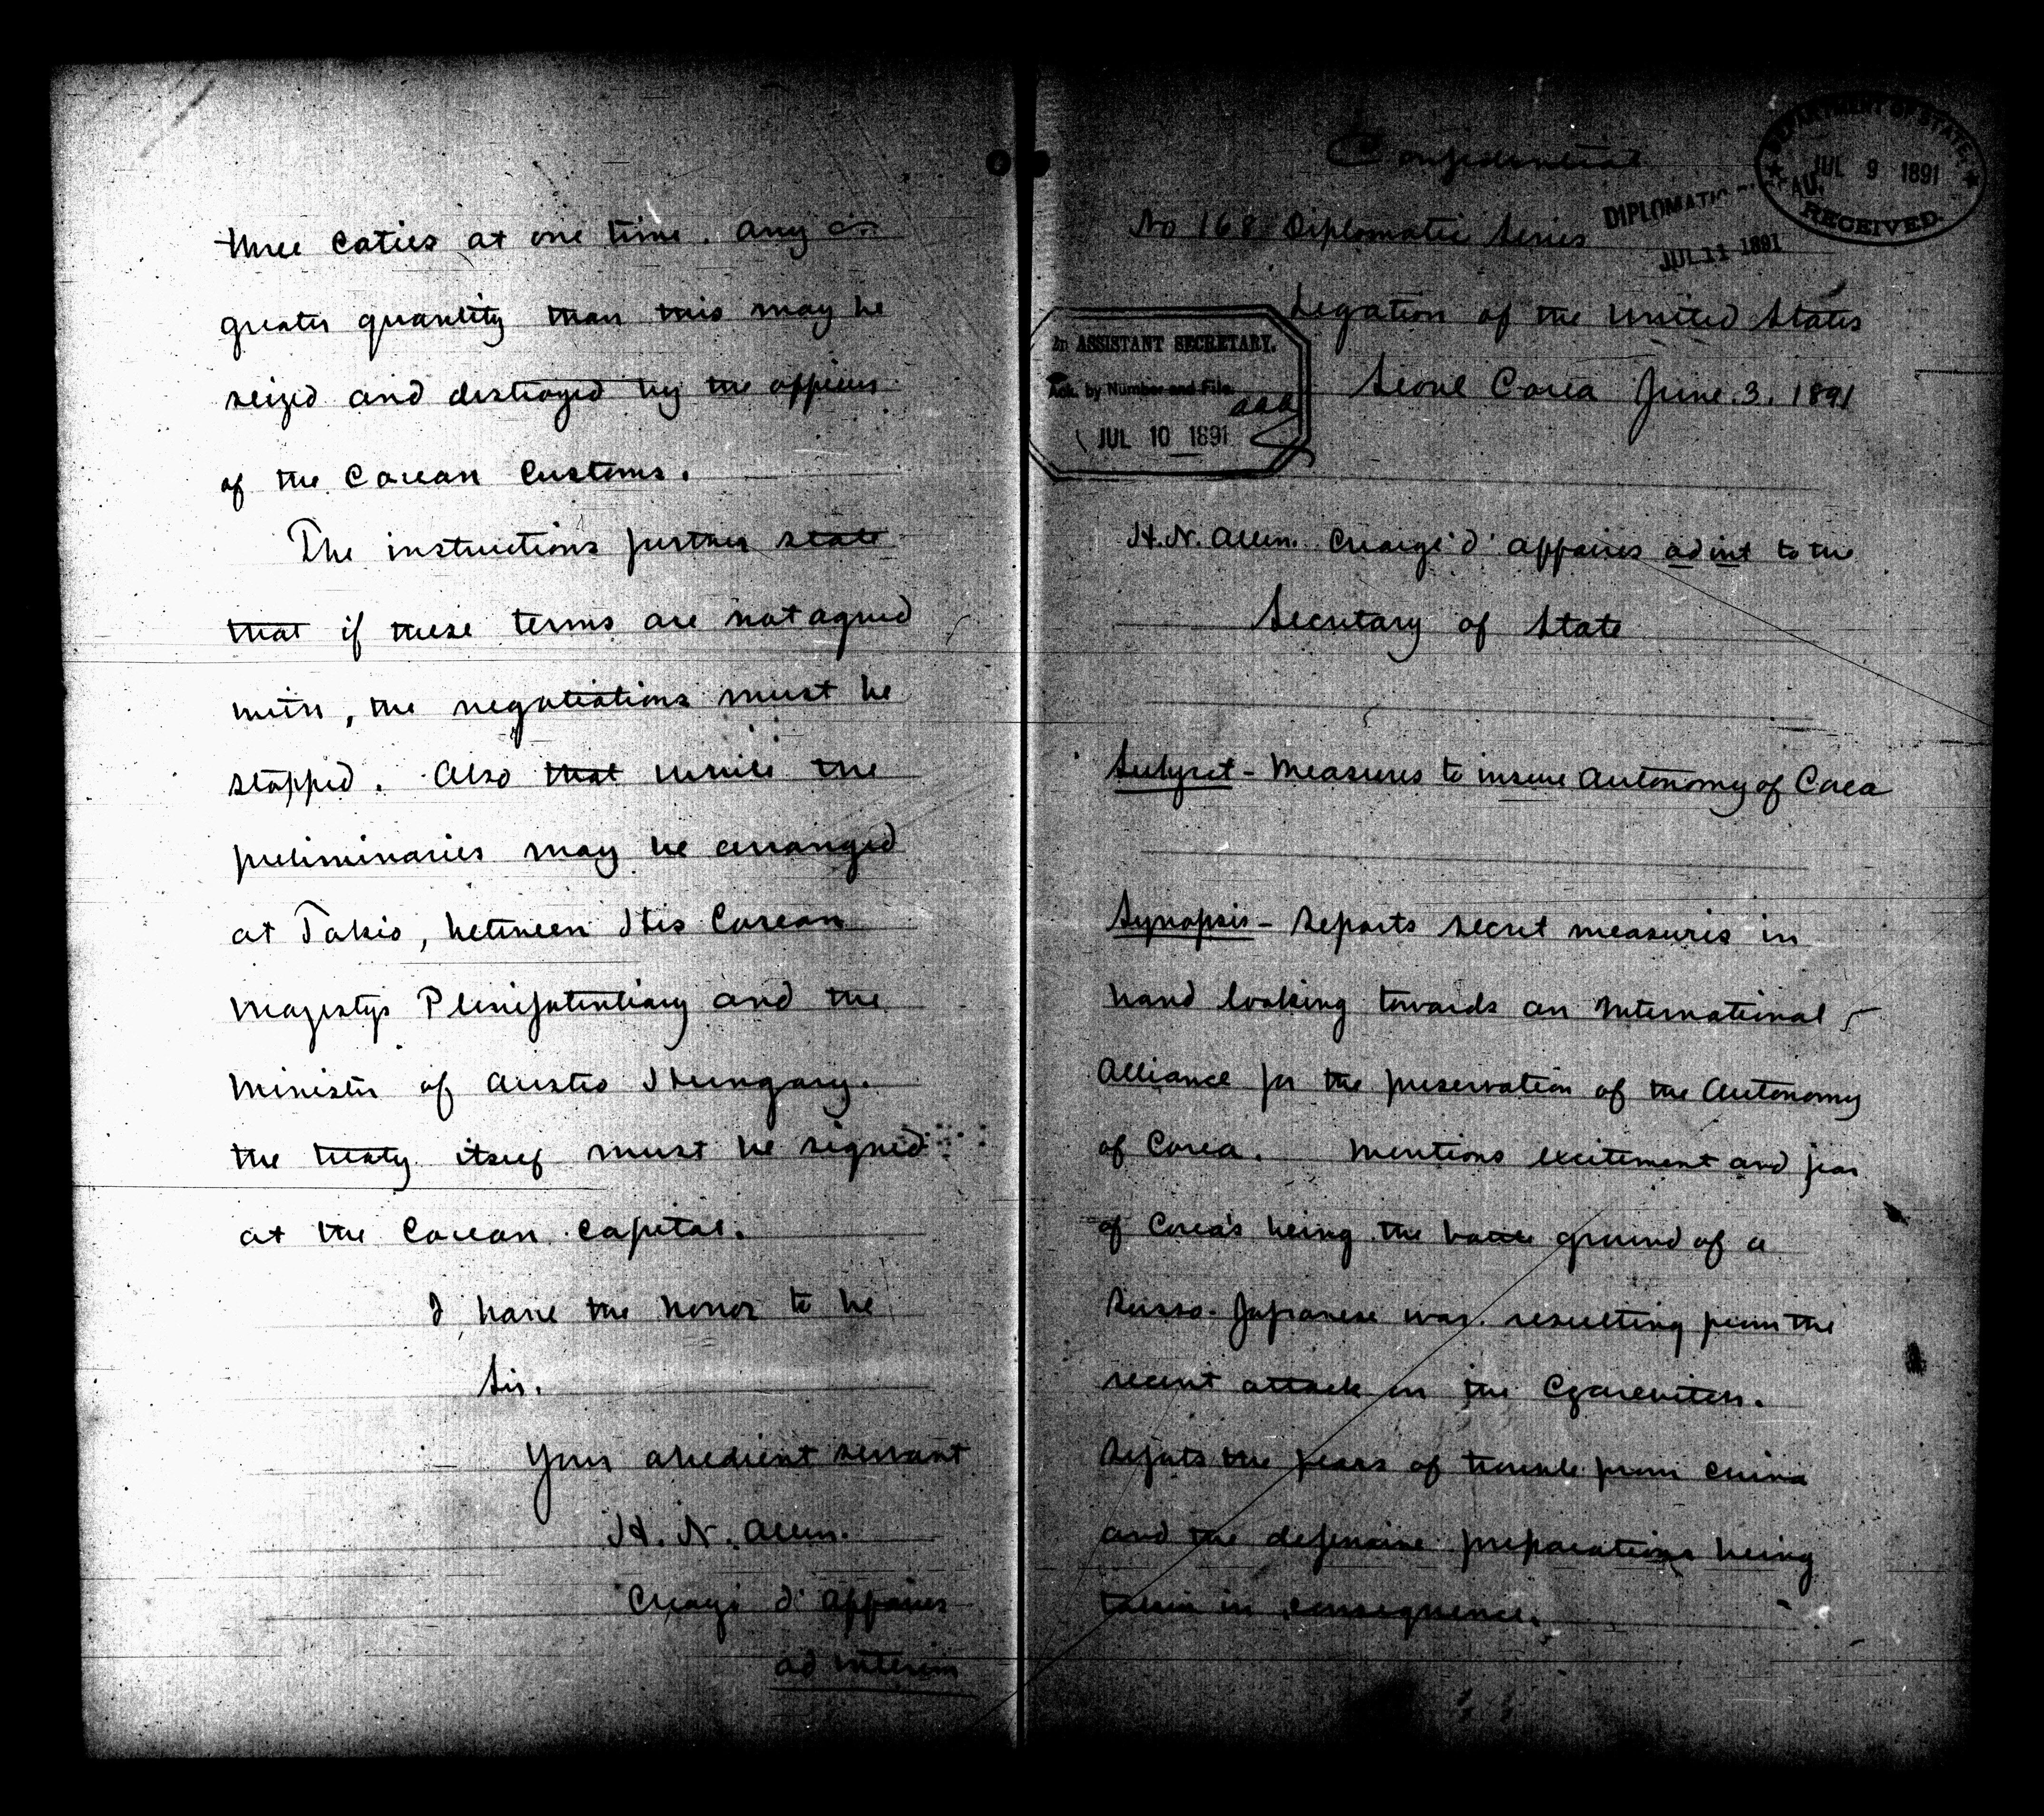 three caties at one time. Any
greater quantity than this may be
seized and destroyed by the officers
of the Corean Customs.
The instructions further state
that if these terms are not agreed
with, the negotiations must be
stopped. Also that while the
preliminaries may be arranged
at Tokio, between His Corean
Majestys Plenipotentiary and the
Minister of Austro Hungary.
the treaty itself must be signed
at the Corean Capital.
I have the honor to be
Sir.
Your obedient servant
H. N. Allen.
Charge d' Affaires
ad interim
Confidential
No 168 Diplomatic Series
DEPARTMENT OF STATE
JUL 9 1891
RECEIVED.
DIPLOMATIC
JUL 11 1891
Legation of the United States
Seoul Corea June. 3. 1891
2n ASSISTANT SECRETARY.
Ack. by Number and File.
JUL 10 1891
H. N. Allen. Chargé d' Affaires ad int to the
Secretary of State
Subject - Measures to insure Autonomy of Corea
Synopsis - Reports secret measures in
hand looking towards an International
Alliance for the preservation of the Autonomy
of Corea. Mentions excitement and fear
of Corea's being the battle ground of a
Russo-Japanese war. resulting from the
recent attack on the Czarevitch.
Reports the fears of trouble from China
and the defensive preparations being
taken in consequence.